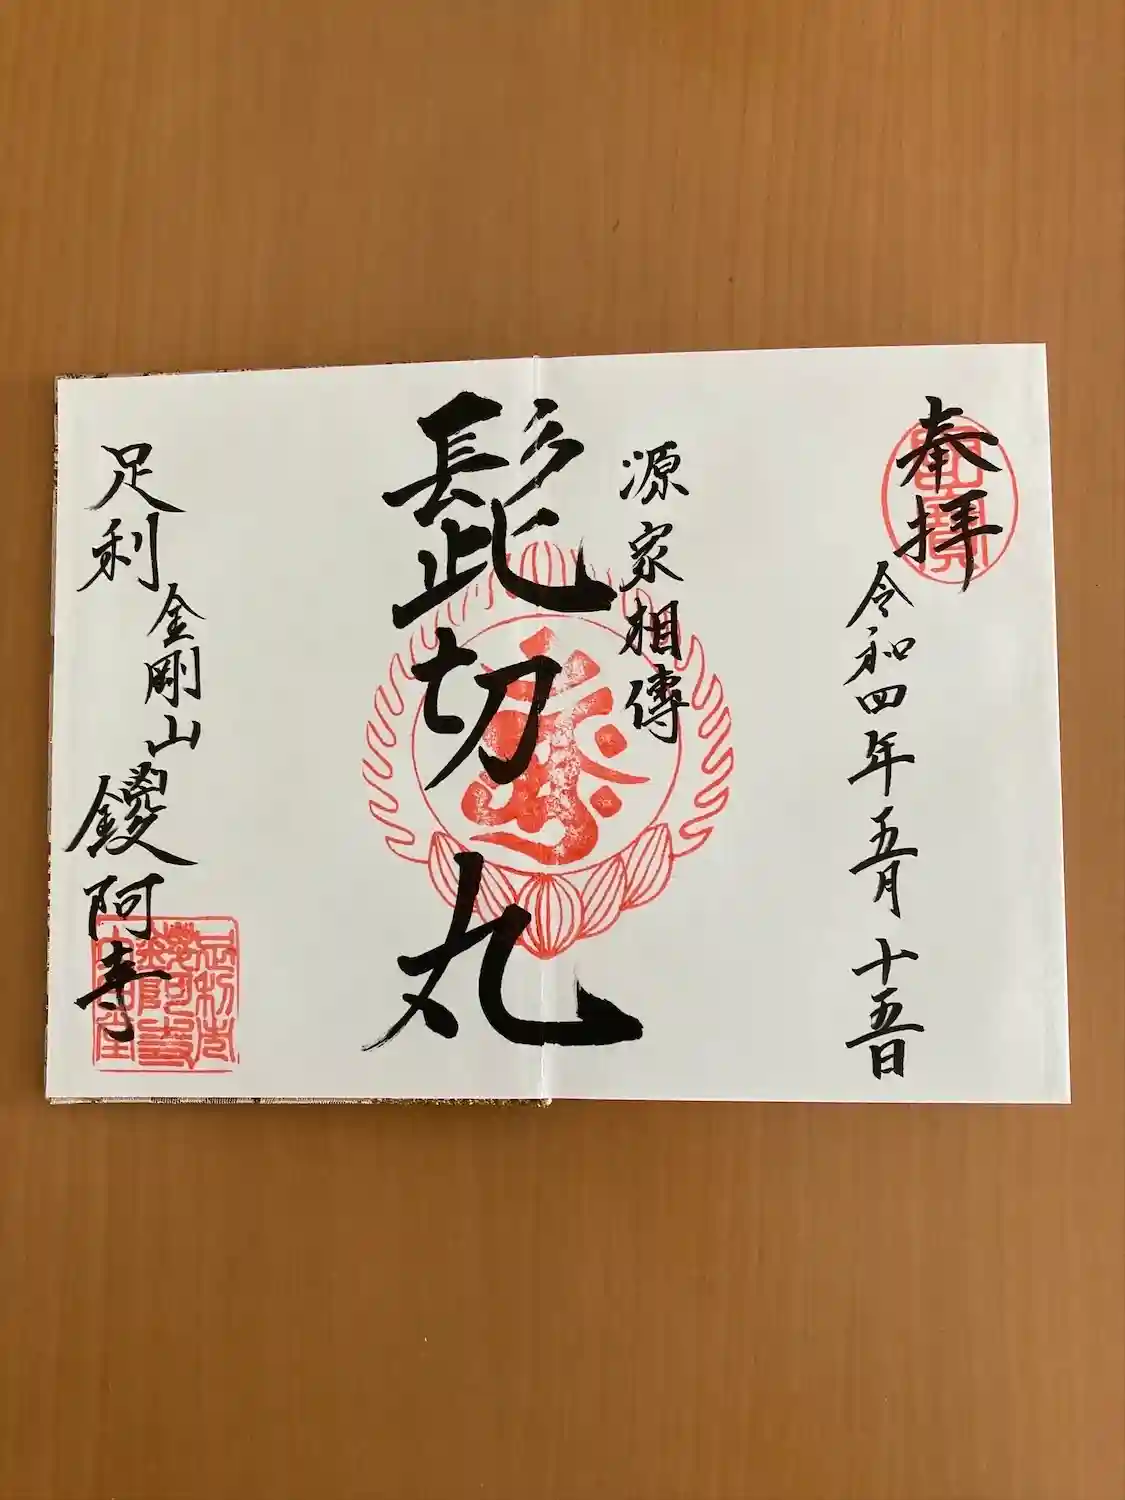 奉拝
令和四年五月十五日
源家相傳
髭切丸
足利
金剛山
鑁阿寺
足利市
鑁阿寺